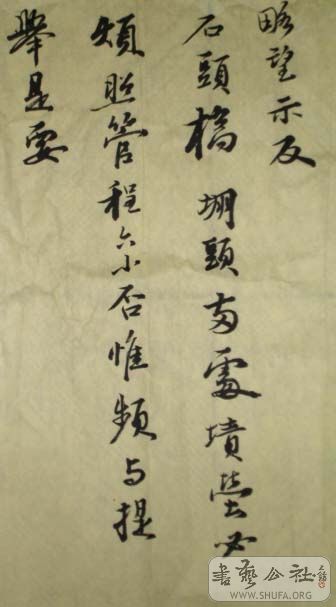 略望示及
石頭橋堋頭兩處墳塋必
煩照管程六小否惟頻与提
舉是要
書藝公社
WWW.SHUFA.ORG